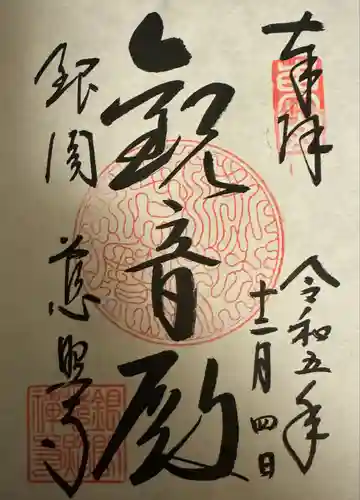 奉拝
令和五年
十二月四日
観音殿
銀閣
慈照寺